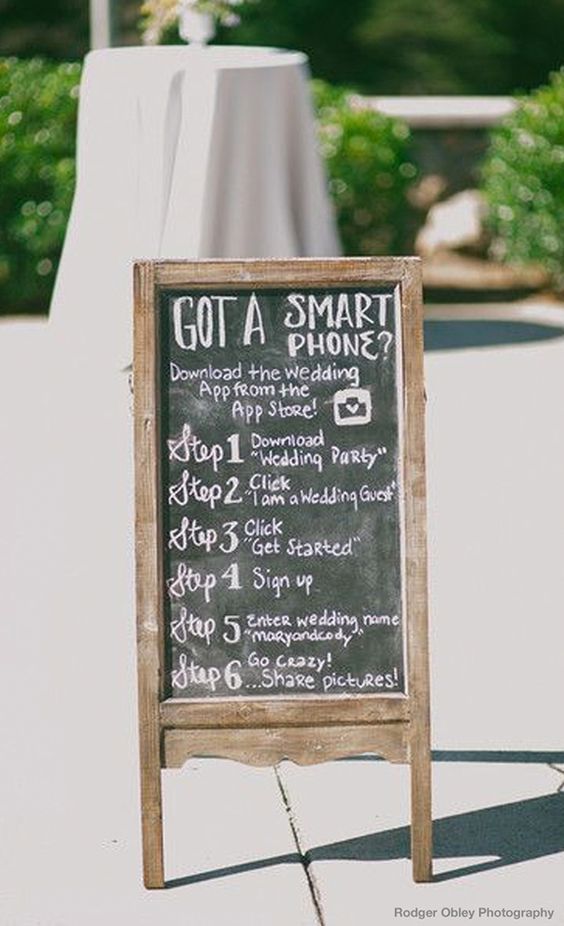 GOT A SMART
PHONE?
Download the Wedding
App from the
App Store!
Step 1 Download
"Wedding Party"
Step 2 Click
"I am a Wedding Guest"
Step 3 Click
"Get Started"
Step 4 Sign up
Step 5 Enter wedding name
"maryandcody"
Step 6 Go Crazy!
...Share pictures!
Rodger Obley Photography